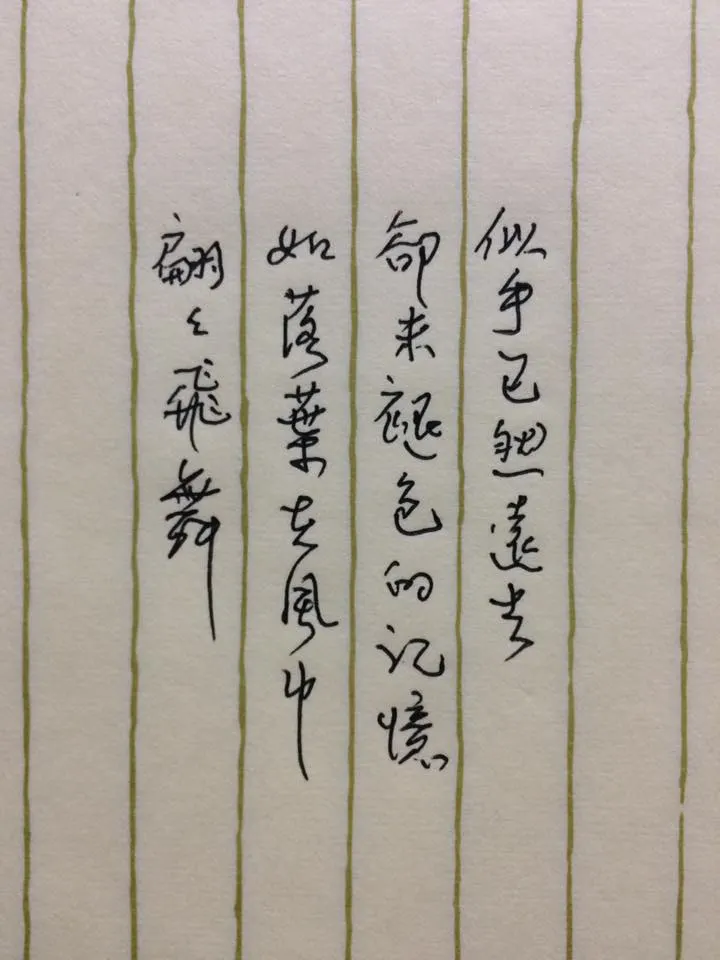 似乎已然遠去
卻未褪色的记憶
如落葉在風中
翩々飛舞